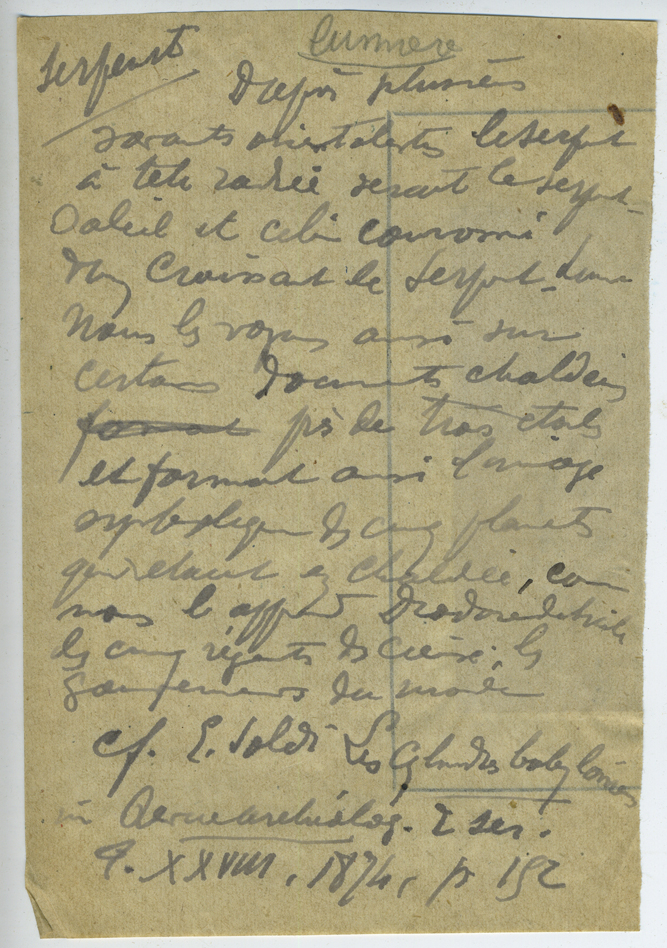 Lumiere
Serpents
D'après plusieurs
savants orientalistes le serpt
à tete radiée serait le serpt-
Soleil et celui couronné
d'un Croissant le Serpt-lune
Nous les voyons aussi sur
certains documents chaldéens
format près de trois etoiles
et formant ainsi l'image
symbolique des cinq planets
qui etaient en Chaldée, com
nous l'apprend Diodore de Sicile
les cinq régents des cieux, les
Gouverneurs du monde
cf. E. Soldi Les Cylindres babyloniens
in Revue archéolog. 2 ser.
T. XXVIII, 1874, p 152